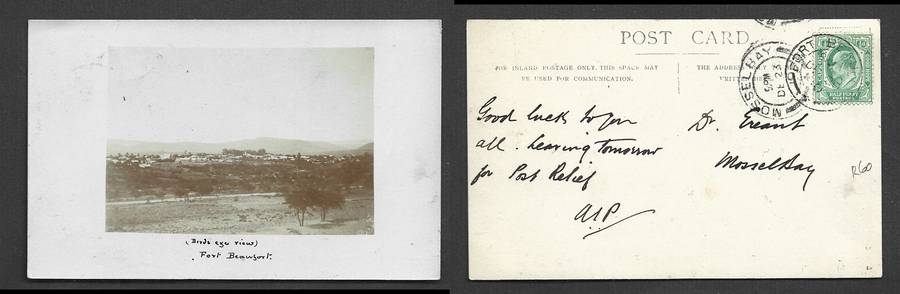 (Birds eye view)
Fort Beaufort.
POST CARD.
FOR INLAND POSTAGE ONLY, THIS SPACE MAY
BE USED FOR COMMUNICATION.
THE ADDRESS
MOSSEL BAY
5 PM
DE 23
HALF PENNY
Good luck to you
all. Leaving tomorrow
for Post Relief
Dr.
Mossel Bay
R60